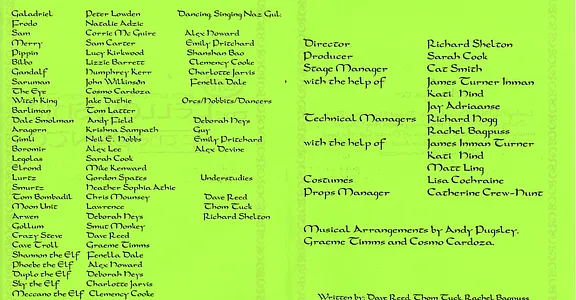 Galadriel Peter Lowden
Frodo Natalie Adzic
Sam Corrie Mc Guire
Merry Sam Carter
Pippin Lucy Kirkwood
Bilbo Lizzie Barrett
Gandalf Humphrey Kerr
Saruman John Wilkinson
The Eye Cosmo Cardoza
Witch King Jake Duthie
Barliman Tom Latter
Dale Smolman Andy Field
Aragorn Krishna Sampath
Gimli Neil E. Hobbs
Boromir Alex Lee
Legolas Sarah Cook
Elrond Mike Kenward
Lurtz Gordon Spates
Smurtz Heather Sophia Athie
Tom Bombadil Chris Mounsey
Moon Unit Lawrence
Arwen Deborah Heys
Gollum Smut Monkey
Crazy Steve Dave Reed
Cave Troll Graeme Timms
Shannon the Elf Fenella Dale
Phoebe the Elf Alex Howard
Duplo the Elf Deborah Heys
Sky the Elf Charlotte Jarvis
Meccano the Elf Clemency Cooke
Dancing Singing Naz Gul:
Alex Howard
Emily Pritchard
Shanshan Bao
Clemency Cooke
Charlotte Jarvis
Fenella Dale
Orcs/Hobbits/Dancers
Deborah Heys
Guy
Emily Pritchard
Alex Devine
Understudies
Dave Reed
Thom Tuck
Richard Shelton
Director Richard Shelton
Producer Sarah Cook
Stage Manager Cat Smith
with the help of James Turner Inman
Kati Hind
Jay Adriaanse
Technical Managers Richard Hogg
Rachel Bagpuss
with the help of James Inman Turner
Kati Hind
Matt Ling
Costumes Lisa Cochraine
Props Manager Catherine Crew-Hunt
Musical Arrangements by Andy Pugsley,
Graeme Timms and Cosmo Cardoza.
Written by: Dave Reed, Thom Tuck, Rachel Bagpuss